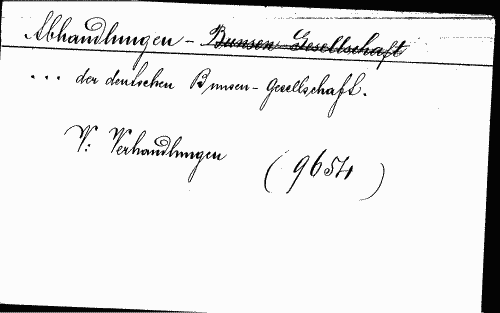 Abhandlungen - Bunsen-Gesellschaft
... der deutschen Bunsen-Gesellschaft.
V: Verhandlungen (9654)